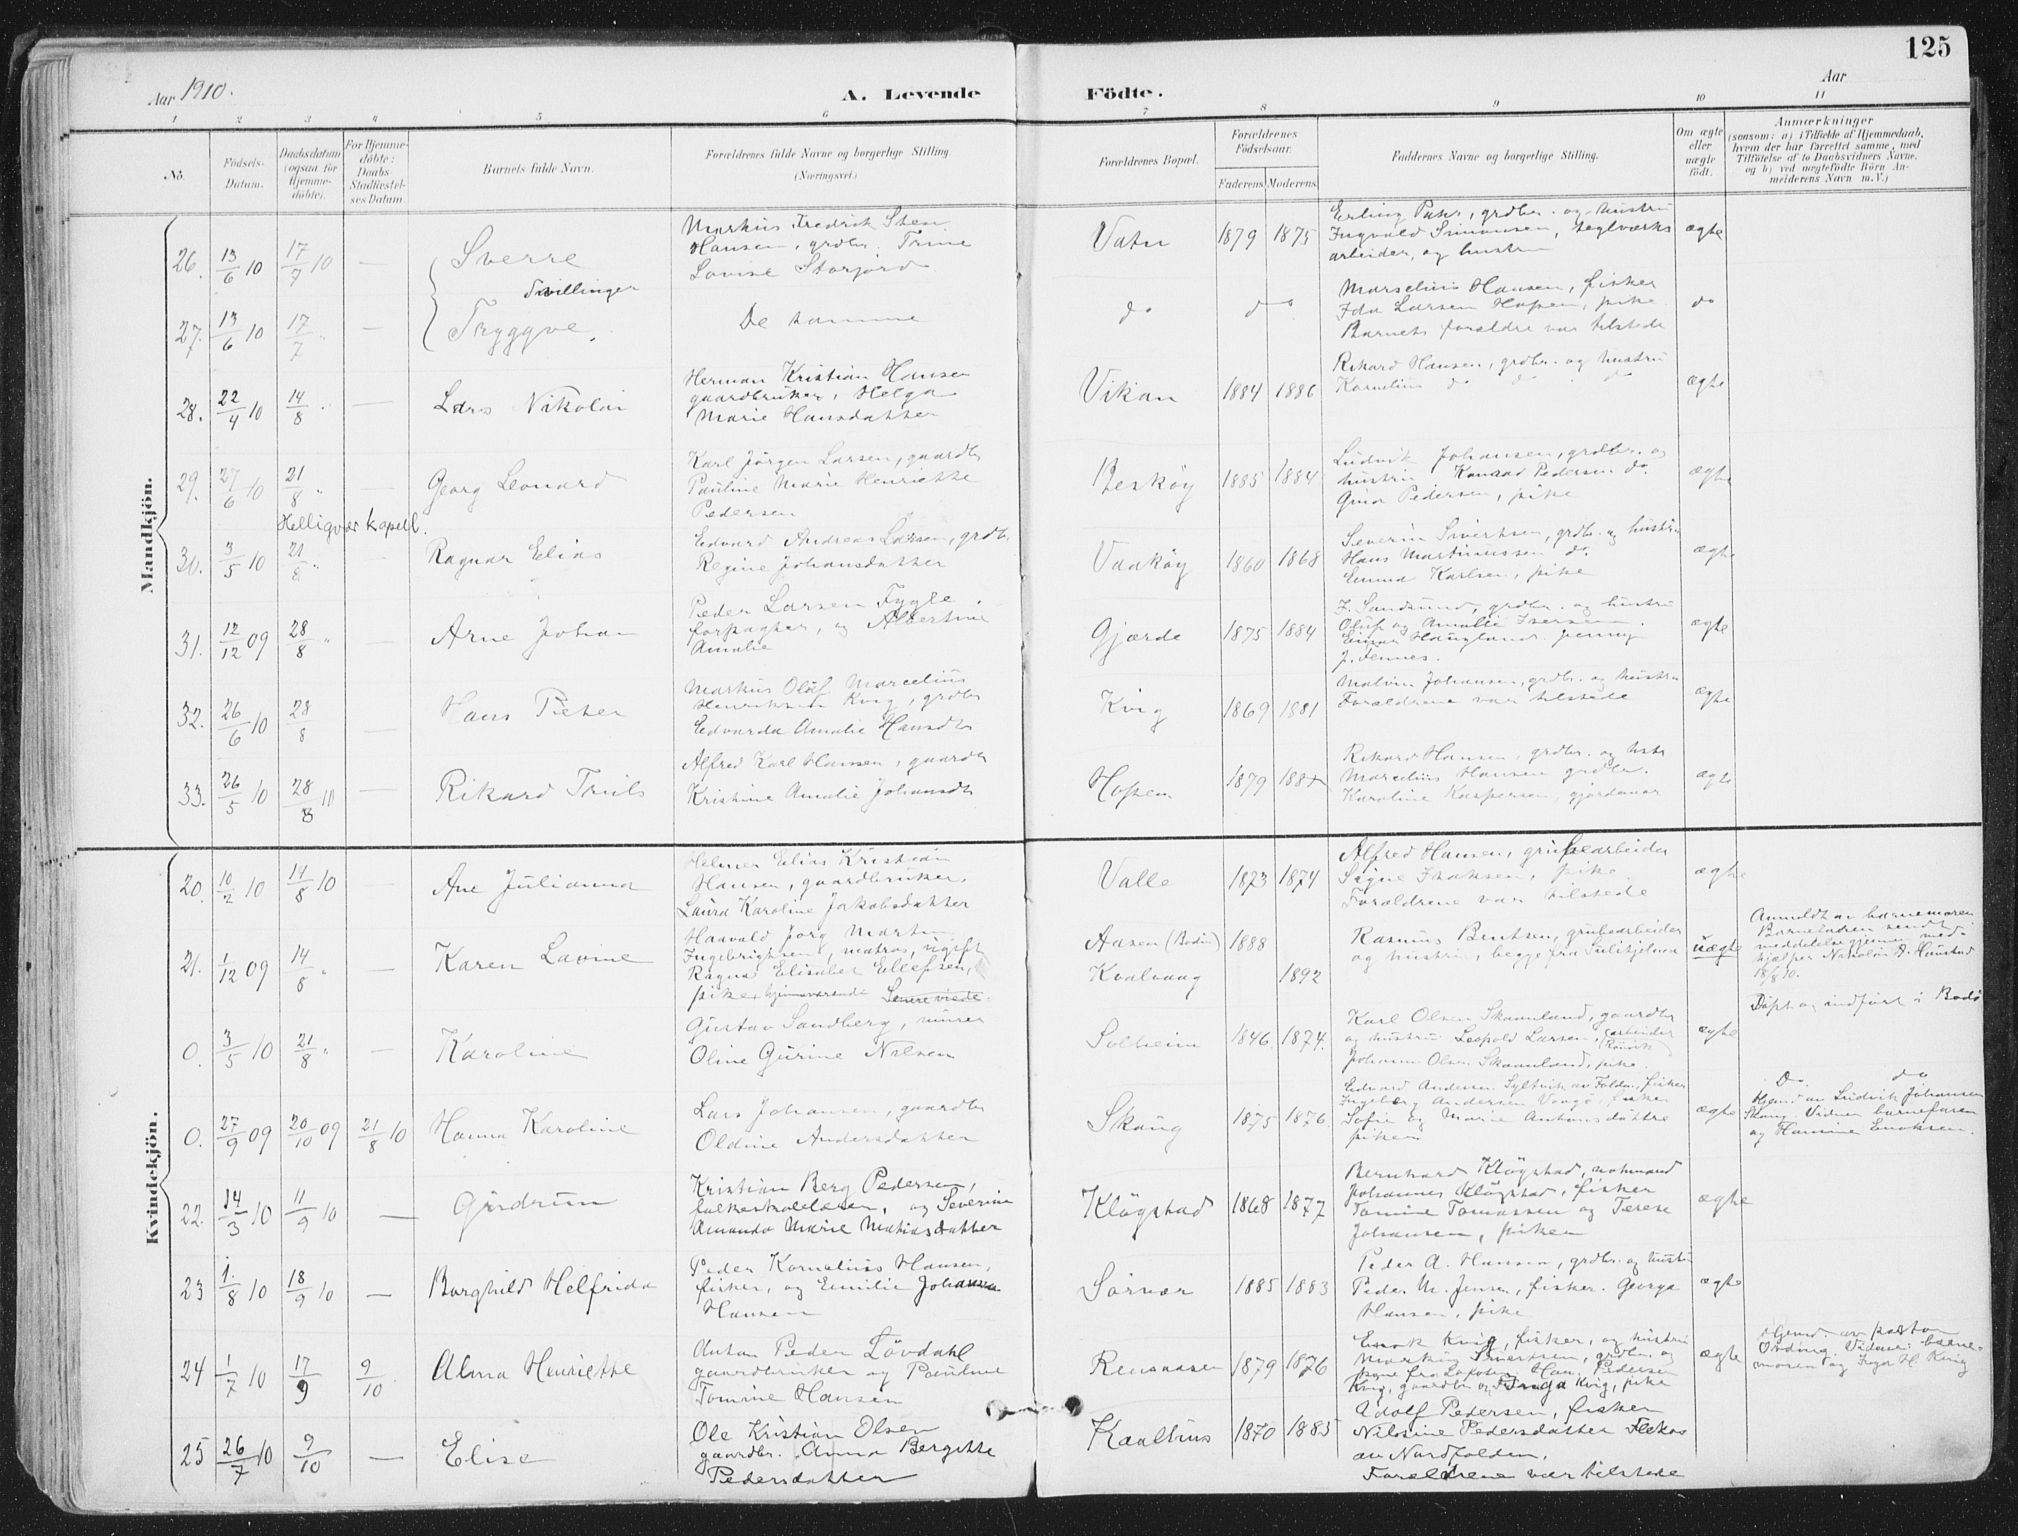 125
Aar 1910.
A. Levende Födte.
Aar
1 2 3 4 5 6 7 8 9 10 11
No.
Födsels-Datum.
Daabsdatum (ogsaa for Hjemmedöbte).
For Hjemmedöbte: Daabs Stadfæstelses Datum.
Barnets fulde Navn.
Forældrenes fulde Navne og borgerlige Stilling
(Næringsvei.)
Forældrenes Bopæl.
Forældrenes Födselsaar.
Faderens Moderens
Faddernes Navne og borgerlige Stilling.
Om ægte eller uægte födt.
Anmærkninger
(saasom: a) i Tilfælde af Hjemmedaab,
hvem der har forrettet samme, med
Tilföielse af to Daabsvidners Navne,
og b) ved uægtefödte Börn An-
melderens Navn m. V.)
Mandkjön.
26. 13/6 10 17/7 10 — Sverre
Markus Fredrik Sten
Hansen, grdbr. Trine
Lovise Storjord
Vatn 1879 1875
Erling Pass, grdbr. og hustru
Ingvald Simonsen, teglværks
arbeider, og hustru
ægte
Tvillinger
27. 13/6 10 17/7 " — Tryggve.
De samme
do do
Marselius Hansen, fisker
Ida Larsen Hopen, pike
Barnets forældre var tilstede
do
28. 22/4 10 14/8 " — Lars Nikolai
Herman Kristian Hansen
gaardbruker, Helga
Marie Hansdatter
Vikan 1884 1886
Rikard Hansen, grdbr. og hustru
Kornelius do do do
ægte
29. 27/6 10 21/8 " — Georg Leonard
Karl Jörgen Larsen, gaardbr
Pauline Marie Henriette
Pedersen
1885 1884
Ludvik Johansen, grdbr. og
hustru Konrad Pedersen do.
Gina Pedersen, pike
ægte
Helligvær kapell.
30. 3/5 10 21/8 " — Ragnar Elias
Edvard Andreas Larsen, grdbr.
Regine Johansdatter
Vaaköy 1860 1868
Severin Sivertsen, grdbr. og hustru
Hans Martinussen do.
Emma Karlsen, pike
ægte
31. 12/12 09 28/8 " — Arne Johan
Peder Larsen Fygle
forpagter, og Albertine
Amalie
Gjærde 1875 1884
J. Sandsund, grdbr. og hustru
Oluf og Amalie Iversen.
Einar Haugland. Jenny
J. Jennes.
ægte
32. 26/6 10 28/8 — Hans Peter
Markus Oluf Marcelius
Henriksen Kvig, grdbr
Edvarda Amalie Hansdtr
Kvig 1869 1881
Malvin Johansen, grdbr. og hustru
Forældrene var tilstede
ægte
33. 26/5 10 28/8 10 — Rikard Truls
Alfred Karl Hansen, gaardbr
Kristine Amalie Johansdtr
Hopen 1879
Rikard Hansen, grdbr. og hstr
Marcelius Hansen grdbr.
Karoline Kaspersen, gjördemor
ægte
Kvindekjön.
20. 10/2 10 14/8 10 — Ane Julianna
Helmer Elias Kristian
Hansen, gaardbruker,
Laura Karoline Jakobsdatter
Valle 1873 1874
Alfred Hansen, grubearbeider
Signe Isaksen, pike.
Forældrene var tilstede
ægte
21. 1/12 09 14/8 " — Karen Lavine
Haavald Jorg Martin
Ingebrigtsen, matros, ugift
Ragna Elisabet Ellefsen,
pike hjemmeværende
Aasen (Bodin) 1888
Kvalvaag 1892
Rasmus Bentsen, grubearbeider
og hustru, begge fra Sulitjelma
uægte
Anmeldt av barnemoren
Barnefaren sendt
meddelelse gjennem med-
hjælper Nikolai A. Haustad
18/8 10.
0. 3/5 10 21/8 " — Karoline
Gustav Sandberg, murer
Oline Gurine Nilsen
Solheim 1846. 1874.
Karl Olsen Skaanland, gaardbr
og hustru. Leopold Larsen, (arbeider
Johanna Olsen Skaanland, pike.
ægte
Döpt og indfört i Bodö
0. 27/9 09 20/10 09 21/8 10 Hanna Karoline
Lars Johansen, gaardbr
Oldine Andersdatter
Skaug 1875 1876
Edvard Andersen Syltvik av Folden, fisker
Ingeborg Andersen Vaagö, fisker
Sofie og Marie Antonsdöttre
piker
ægte
Do. do
Hjemd. av Ludvik Johansen
Skaug. Vidner barnefaren
og Hansine Enoksen.
22. 14/3 10 11/9 10 — Gudrun
Kristian Berg Pedersen,
folkeskolelærer, og Severine
Amanda Marie Matiasdatter
Klögstad 1868 1877
Bernhard Klögstad, notmand
Johannes Klögstad, fisker
Tomine Tomassen og Terese
Johansen, piker
ægte
23 1/8 10 18/9 10 — Borghild Helfrida
Peder Kornelius Hansen,
fisker, og Emilie Johanna
Hansen
Sörvær 1885 1883
Peder A. Hansen, grdbr. og hustru
Peder M. Jensen, fisker. Georga
Hansen, pike
ægte
24 1/7 10 17/9 9/10 Alma Henriette
Anton Peder Lövdahl
gaardbruker og Pauline
Tomine Hansen
Rensaasen 1879 1876
Enok Kvig, fisker, og hustru
Markus Sivertsen, grdbr. og
Kvig, gaardbr og Inga Kvig, pike
ægte
Hjemd. av pastor
Ording. Vidner: barne-
moren og Inga H. Kvig
25 26/7 10 9/10 — Elise
Ole Kristian Olsen
gaardbr. Anna Bergitte
Pedersdatter
Kaalhus 1870 1885
Adolf Pedersen, fisker
Nilsine Pedersdatter
av Nordfolden.
Forældrene var tilstede